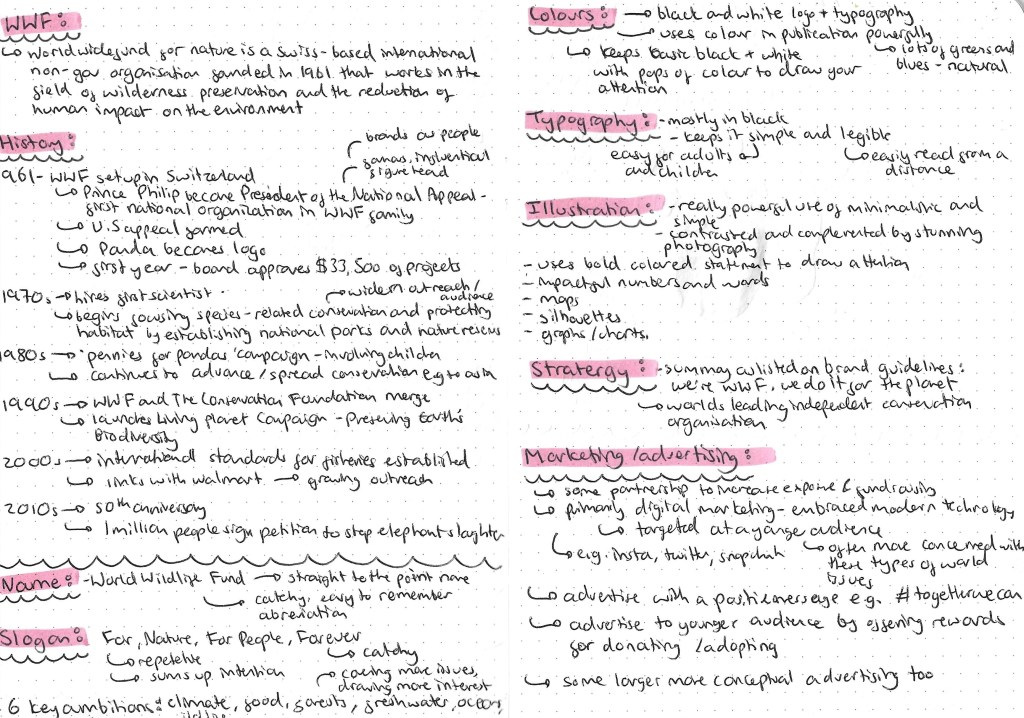 WWF:
worldwidefund for nature is a Swiss-based international
non-gov organisation founded in 1961 that works in the
field of wilderness preservation and the reduction of
human impact on the environment
History:
brands ow people
famous, influential
figurehead
1961- WWF setup in Switzerland
Prince Philip became President of the National Appeal -
first national organisation in WWF family
U.S appeal formed
Panda becomes logo
first year - board approves $33,500 of projects
1970s hires first scientist.
widen outreach/
audience
begins focusing species-related conservation and protecting
habitat by establishing national parks and nature reserves
1980s 'pennies for pandas' campaign - involving children
continues to advance/spread conservation e.g to asia
1990s WWF and The Conservation Foundation merge
launches Living Planet Campaign - Preserving Earth's
Biodiversity
2000s international standards for fisheries established
links with walmart growing outreach
2010s 50th anniversary
1 million people sign petition to stop elephant slaughter
Name: - World Wildlife Fund straight to the point name
catchy, easy to remember
abreviation
Slogan: For, Nature, For People, Forever
repetetive catchy
sums up intention
covering more issues,
drawing more interest
6 key ambitions: climate, food, forests, freshwater, oceans,
wildlife
Colours: black and white logo + typography
uses colour in publication powerfully
keeps basic black + white
with pops of colour to draw your
attention
lots of greens and
blues - natural
Typography: - mostly in black
- keeps it simple and legible
easy for adults
and children
easily read from a
distance
Illustration: - really powerful use of minimalistic and
simple
- contrasted and complemented by stunning
photography
- uses bold colored statement to draw attention
- impactful numbers and words
- maps
- silhouettes
- graphs/charts.
Stratergy: - summary as listed on brand guidelines:
we're WWF, we do it for the planet
worlds leading independent conservation
organisation
Marketing/advertising:
some partnership to increase exposure & fundraising
primarily digital marketing - embraced modern technology
targeted at a younger audience
e.g. insta, twitter, snapchat
often more concerned with
these types of world
issues
advertise with a positive message e.g. #togetherwecan
advertise to younger audience by offering rewards
for donating/adopting
some larger more conceptual advertising too